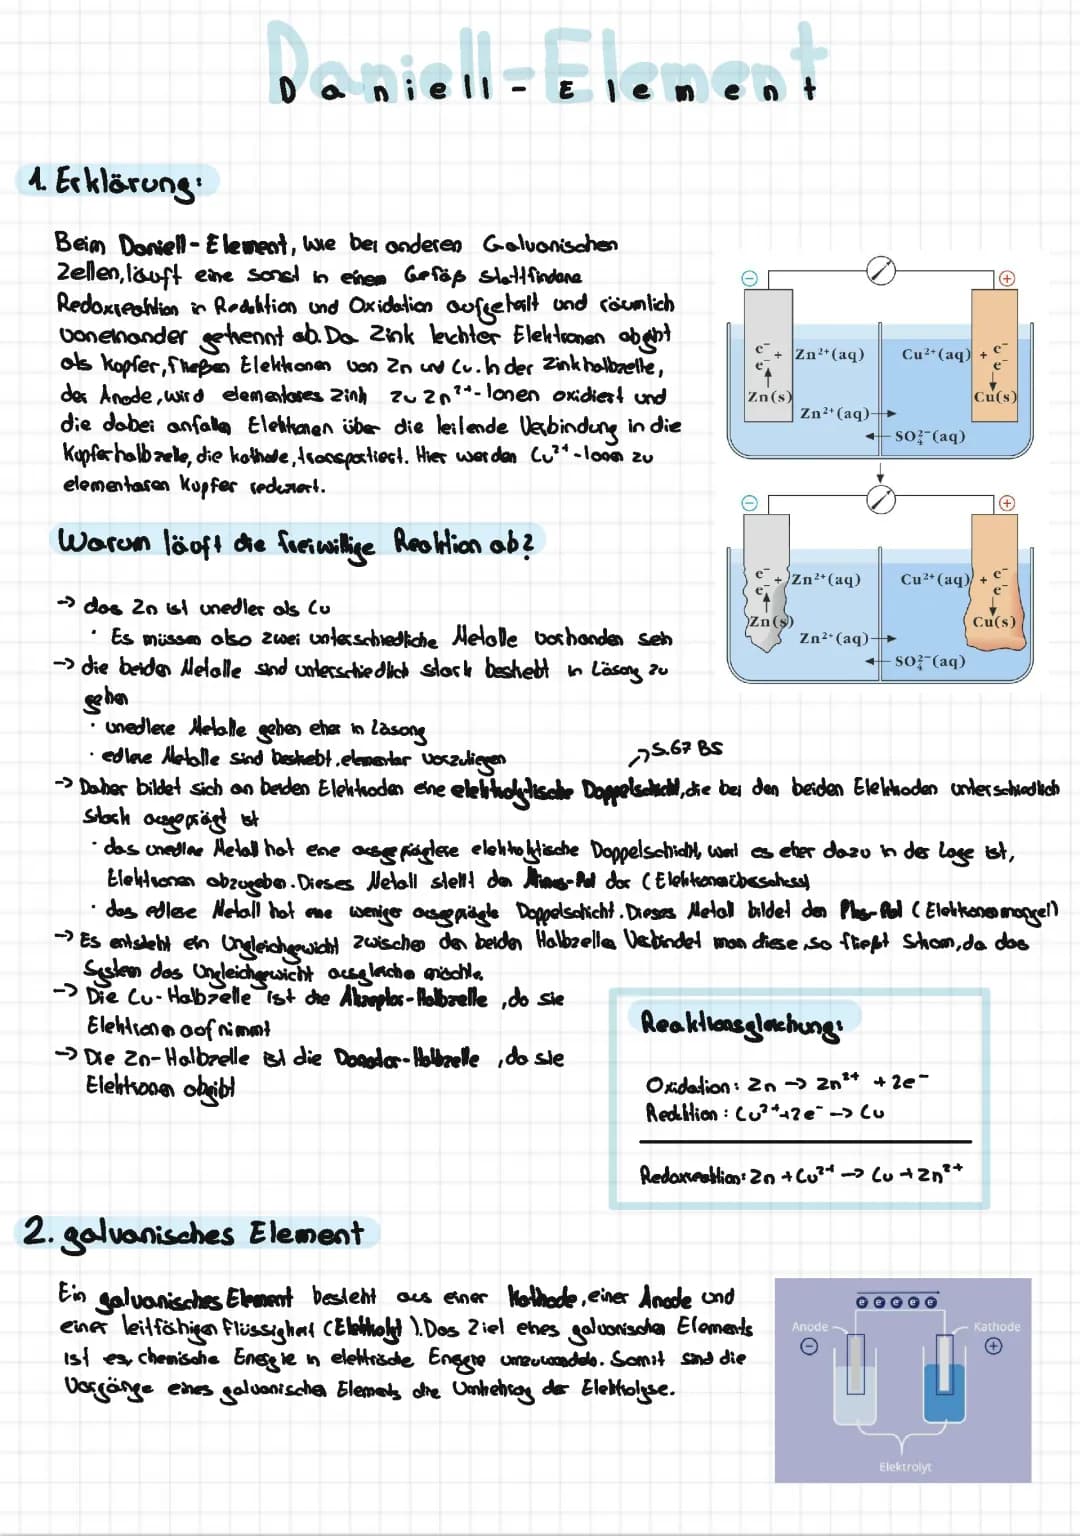 Daniell-Element
Daniell-Element
1. Erklärung:
Beim Daniell-Element, wie bei anderen Galvanischen
Zellen, läuft eine sonst in einem Gefäß stattfindene
Redoxreaktion in Reduktion und Oxidation aufgeteilt und räumlich
voneinander getrennt ab. Da Zink leichter Elektronen abgibt
als Kupfer, fließen Elektronen von Zn und Cu. In der Zinkhalbzelle,
der Anode, wird elementares Zink zu Zn²⁺-Ionen oxidiert und
die dabei anfallen Elektronen über die leitende Verbindung in die
Kupferhalbzelle, die Kathode, transportiert. Hier werden Cu²⁺-Ionen zu
elementaren Kupfer reduziert.
Warum läuft die freiwillige Reaktion ab?
→ das Zn ist unedler als Cu
· Es müssen also zwei unterschiedliche Metalle vorhanden sein
→ die beiden Metalle sind unterschiedlich stark bestrebt in Lösung zu
gehen
· unedlere Metalle gehen eher in Lösung
· edlere Metalle sind bestrebt, elementar vorzuliegen
→ S.67 BS
→ Daher bildet sich an beiden Elektroden eine elektrolytische Doppelschicht, die bei den beiden Elektroden unterschiedlich
stark ausgeprägt ist
· das unedlere Metall hat eine ausgeprägtere elektrolytische Doppelschicht, weil es eher dazu in der Lage ist,
Elektronen abzugeben. Dieses Metall stellt den Minus-Pol dar (Elektronenüberschuss)
· das edlere Metall hat eine weniger ausgeprägte Doppelschicht. Dieses Metall bildet den Plus-Pol (Elektronenmangel)
→ Es entsteht ein Ungleichgewicht zwischen den beiden Halbzellen. Verbindet man diese, so fließt Strom, da das
System das Ungleichgewicht ausgleichen möchte.
→ Die Cu-Halbzelle ist die Akzeptor-Halbzelle, da sie
Elektronen aufnimmt
→ Die Zn-Halbzelle ist die Donator-Halbzelle, da sie
Elektronen abgibt
⊖ ⊕
e⁻ + Zn²⁺(aq) Cu²⁺(aq) + e⁻
e⁻ e⁻
Zn(s) Cu(s)
Zn²⁺(aq)→
← SO₄²⁻(aq)
⊖ ⊕
e⁻ + Zn²⁺(aq) Cu²⁺(aq) + e⁻
e⁻ e⁻
Zn(s) Cu(s)
Zn²⁺(aq)→
← SO₄²⁻(aq)
Reaktionsgleichung:
Oxidation: Zn → Zn²⁺ + 2e⁻
Reduktion: Cu²⁺+2e⁻ → Cu
Redoxreaktion: Zn + Cu²⁺ → Cu + Zn²⁺
2. galvanisches Element
Ein galvanisches Element besteht aus einer Kathode, einer Anode und
einer leitfähigen Flüssigkeit (Elektrolyt). Das Ziel eines galvanischen Elements
ist es, chemische Energie in elektrische Energie umzuwandeln. Somit sind die
Vorgänge eines galvanischen Elements die Umkehrung der Elektrolyse.
e e e e e
Anode Kathode
⊖ ⊕
Elektrolyt